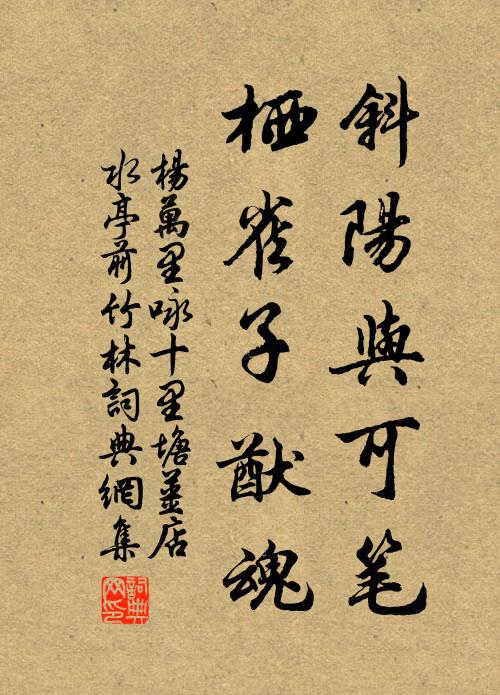 斜陽與可笔
栖雀子猷魂
楊萬里咏十里塘薑店
水亭前竹林詞典網集
詞典
网印